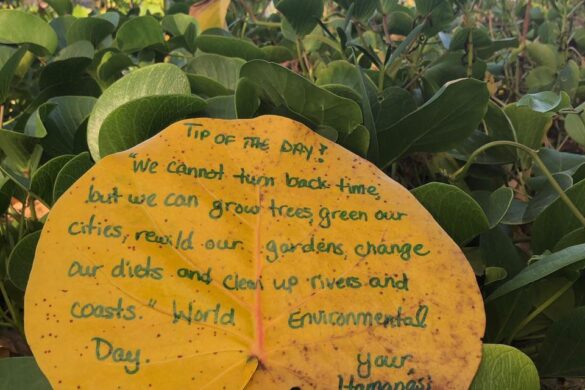 TIP OF THE DAY!
"We cannot turn back time,
but we can grow trees, green our
cities, rewild our gardens, change
our diets and clean up rivers and
coasts." World Environmental
Day. Your,